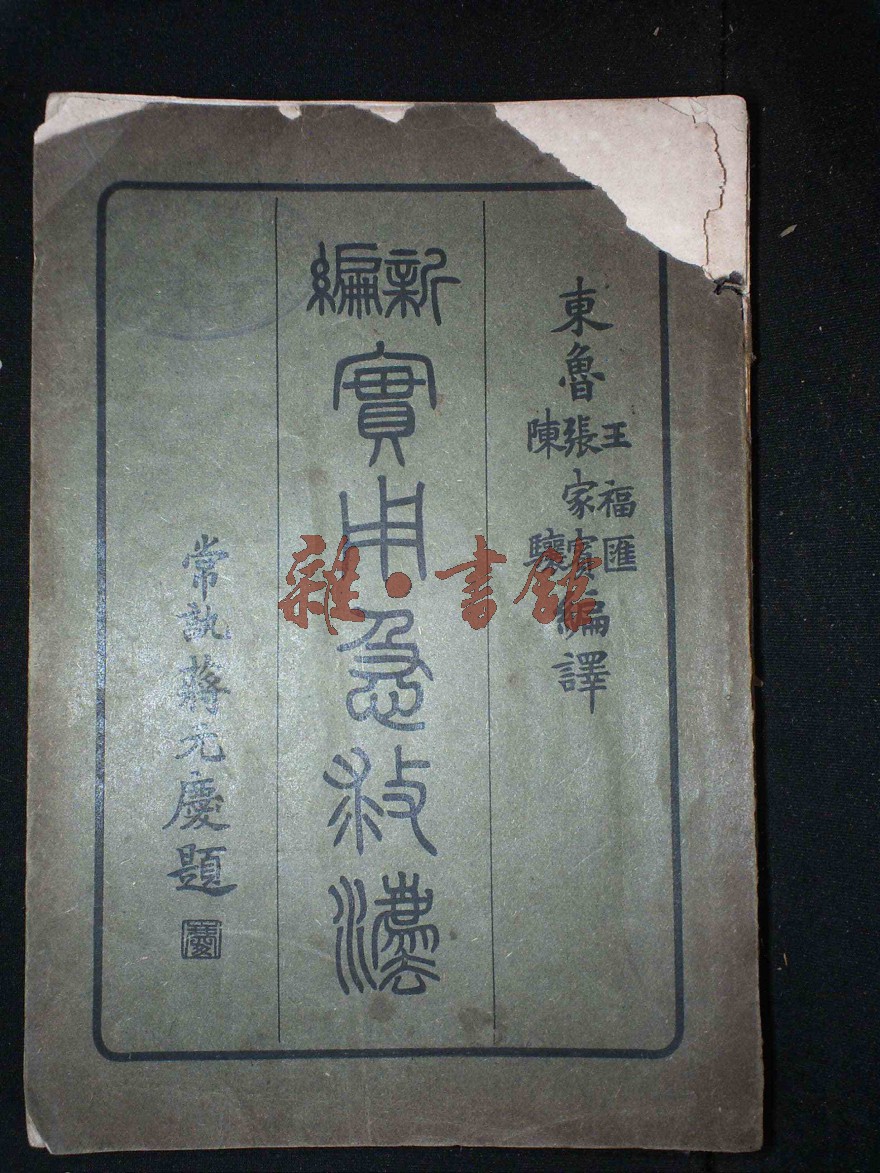 東魯
王福匯
張家賓
陳驤
編譯
新編
實用急救法
常孰蔣元慶題
雜·書館